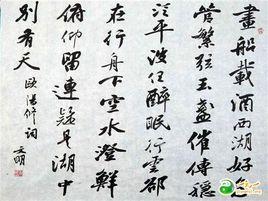 畫船載酒西湖好急
管繁弦玉盞催傳穩
泛平波任醉眠行雲卻
在行舟下空水澄鮮
俯仰留連疑是湖中
別有天
歐陽修詞